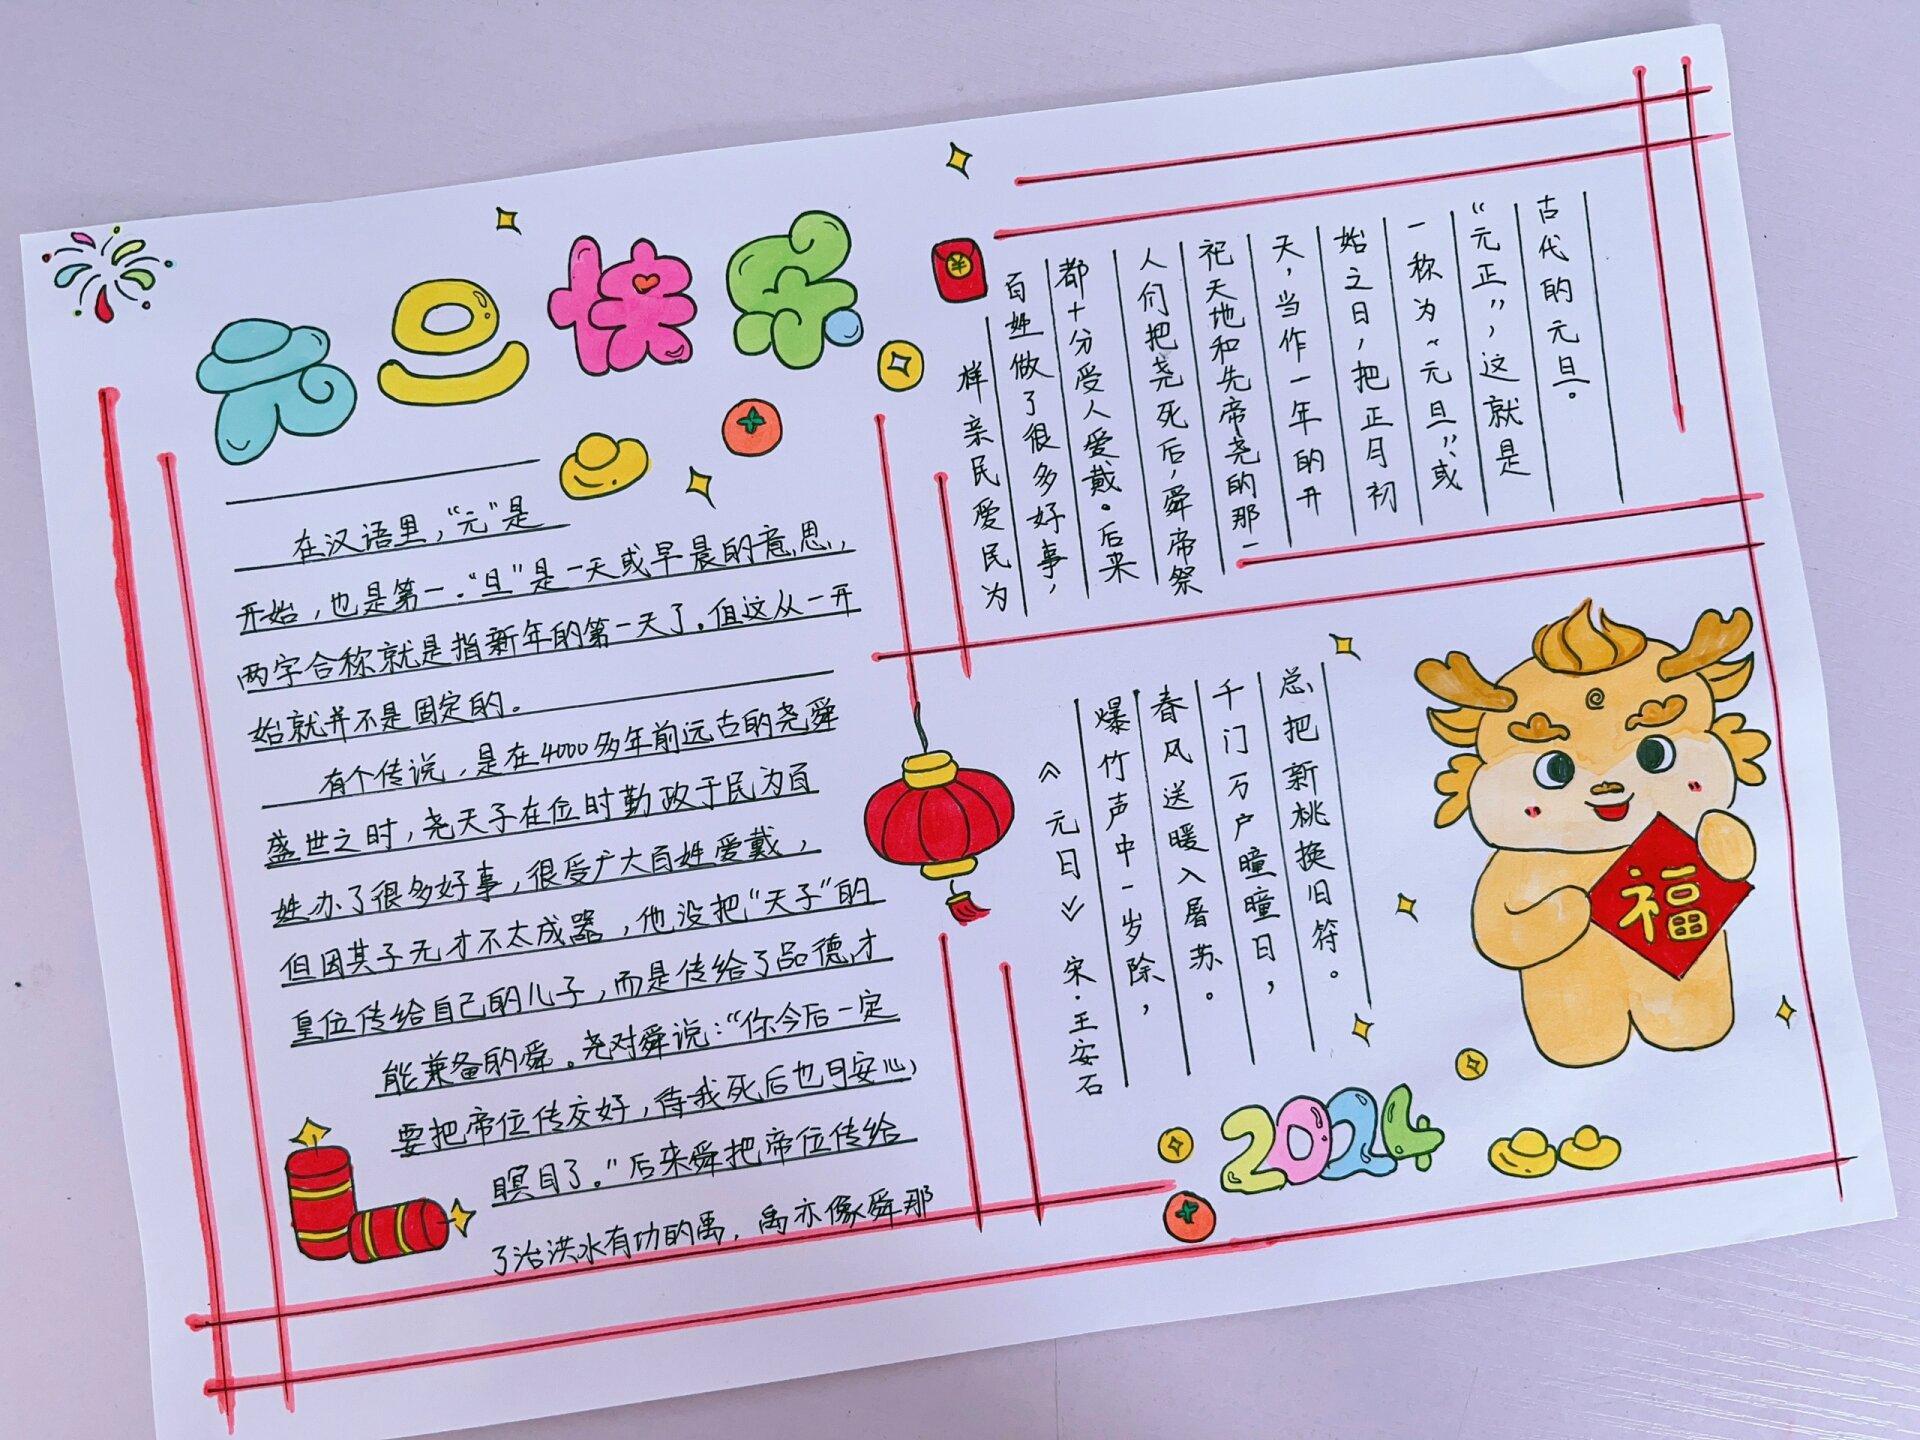 元旦快乐
在汉语里，“元”是
开始，也是第一．“旦”是一天或早晨的意思，
两字合称就是指新年的第一天了．但这从一开
始就并不是固定的。
有个传说，是在4000多年前远古的尧舜
盛世之时，尧天子在位时勤政于民为百
姓办了很多好事，很受广大百姓爱戴，
但因其子无才不太成器，他没把“天子”的
皇位传给自己的儿子，而是传给了品德才
能兼备的舜。尧对舜说：“你今后一定
要把帝位传交好，待我死后也可安心
瞑目了。”后来舜把帝位传给
了治洪水有功的禹，禹亦像舜那
¥
样亲民爱民为
百姓做了很多好事，
都十分受人爱戴。后来
人们把尧死后，舜帝祭
祀天地和先帝尧的那一
天，当作一年的开
始之日，把正月初
一称为“元旦”，或
“元正”，这就是
古代的元旦。
《元日》 宋·王安石
爆竹声中一岁除，
春风送暖入屠苏。
千门万户曈曈日，
总把新桃换旧符。
福
2024